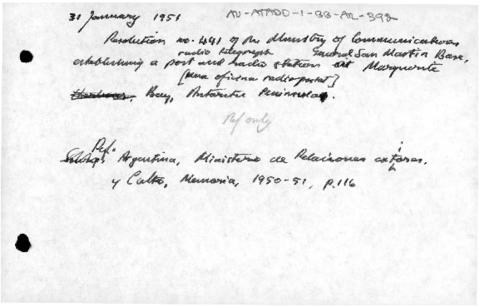 31 January 1951 AU-ATADD-1-BB-AR-392
Resolution no. 441 of the Ministry of Communications
radio telegraph General San Martin Base,
establishing a post and radio station at Marguerite
[una oficina radiopostal]
Bay, Antarctic Peninsula.
Ref only
Ref.
Argentina, Ministerio de Relaciones exteriores
y Culto, Memoria, 1950-51, p.116